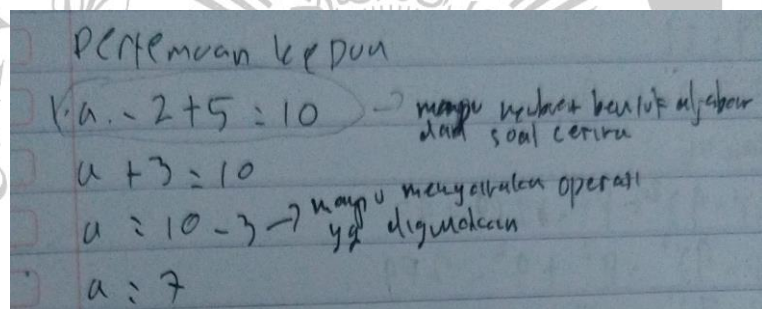 Pertemuan kedua
1. a. - 2 + 5 = 10 → mampu membuat bentuk aljabar
dari soal cerita
a + 3 = 10
a = 10 - 3 → mampu menyatakan operasi
yg digunakan
a = 7